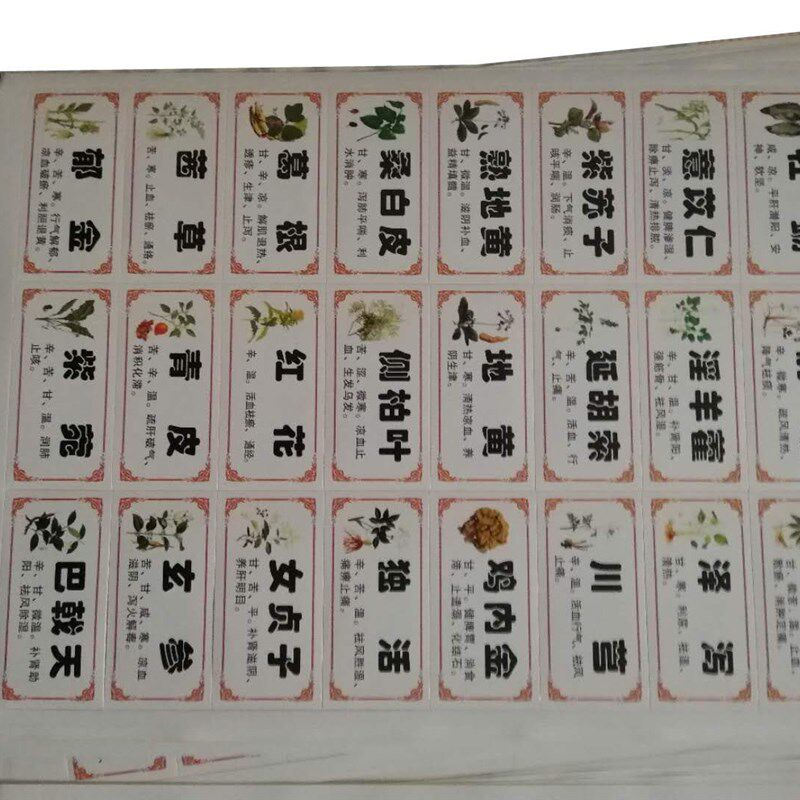 咸、凉。平肝潜阳、安
神、软坚。
微寒。疏风清热、
降气祛痰。
薏苡仁
甘、淡、凉。健脾渗湿、
除痹止泻、清热排脓。
淫羊藿
辛、甘、温。补肾阳、
强筋骨、祛风湿。
泽泻
甘、寒。利湿、祛湿、
清热。
紫苏子
辛、温。下气消痰、止
咳平喘、润肠
延胡索
辛、苦、温。活血、行
气、止痛。
川芎
辛、温。活血行气、祛风
止痛。
熟地黄
甘、微温。滋阴补血、
益精填髓。
地黄
甘、寒。清热凉血、养
阴生津。
鸡内金
甘、平。健脾胃、消食
滞、止遗溺、化结石。
桑白皮
甘、寒。泻肺平喘、利
水消肿。
侧柏叶
苦、涩、微寒。凉血止
血、生发乌发。
独活
辛、苦、温。祛风胜湿、
痛痹止痛。
葛根
甘、辛、凉。解肌退热、
透疹、生津、止泻。
红花
辛、温。活血祛瘀、通经。
女贞子
甘、苦、平。补肾滋阴、
养肝明目。
茜草
苦、寒。止血、祛瘀、通络。
青皮
苦、辛、温。疏肝破气、
消积化滞。
玄参
苦、甘、咸、寒。凉血
滋阴、泻火解毒。
郁金
辛、苦、寒。行气解郁、
凉血破瘀、利胆退黄。
紫菀
辛、苦、甘、温。润肺
止咳。
巴戟天
辛、甘、微温。补肾助
阳、祛风除湿。